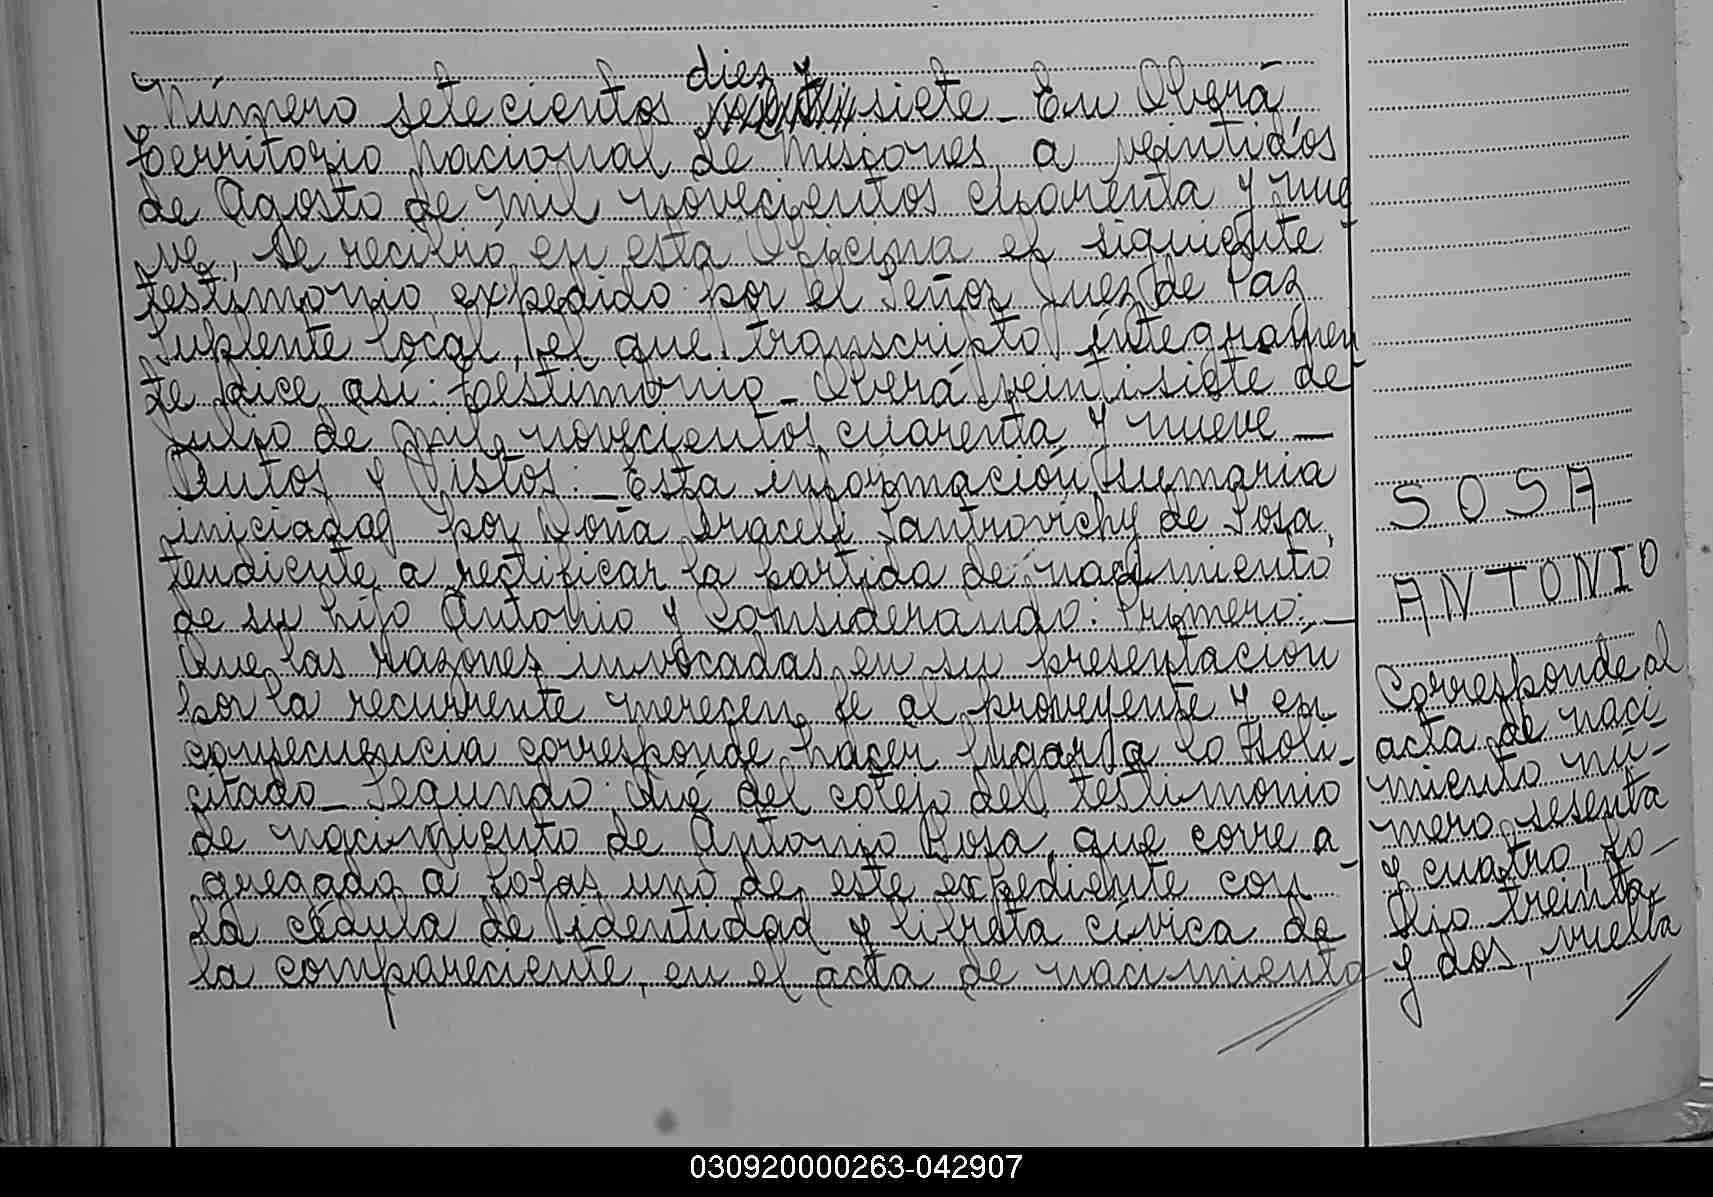 diez y
Número setecientos siete_ En Oberá
territorio nacional de Misiones, a veintidós
de Agosto de mil novecientos cuarenta y nue
ve, se recibió en esta Oficina el siguiente
testimonio expedido por el Señor Juez de Paz
Suplente local, el que transcripto íntegramen
te dice así: Testimonio_ Oberá veintisiete de
Julio de mil novecientos cuarenta y nueve_
Autos y Vistos:_ Esta información sumaria
iniciada por Doña Araceli Santrovichy de Sosa,
tendiente a rectificar la partida de nacimiento
de su hijo Antonio y Considerando: Primero:_
Que las razones invocadas en su presentación
por la recurrente merecen fe al proveyente y en
consecuencia corresponde hacer lugar a lo soli_
citado_ Segundo: Que del cotejo del testimonio
de nacimiento de Antonio Sosa, que corre a_
gregado a fojas uno de este expediente con
la cédula de identidad y libreta cívica de
la compareciente, en el acta de nacimiento
SOSA
ANTONIO
Corresponde al
acta de naci_
miento nú_
mero sesenta
y cuatro, fo_
lio treinta
y dos, vuelta
030920000263-042907